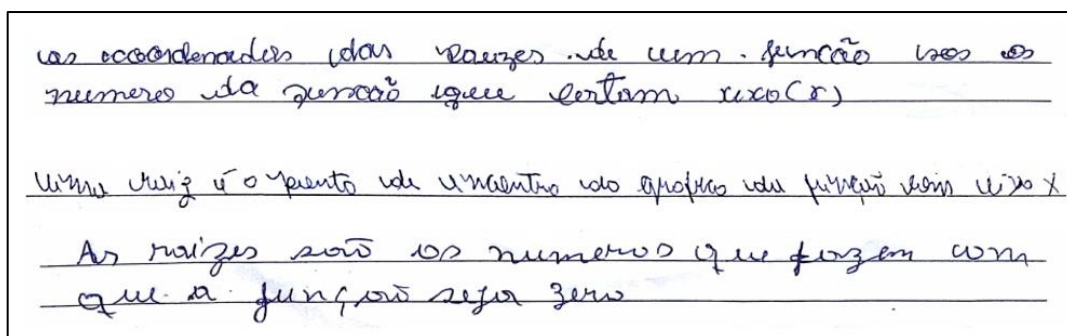 as coordenadas das raizes de um função sao os
numeros da função que cortam eixo (x)
Uma raiz é o ponto de encontro do grafico da função com eixo X
As raizes são os numeros que fazem com
que a função seja zero